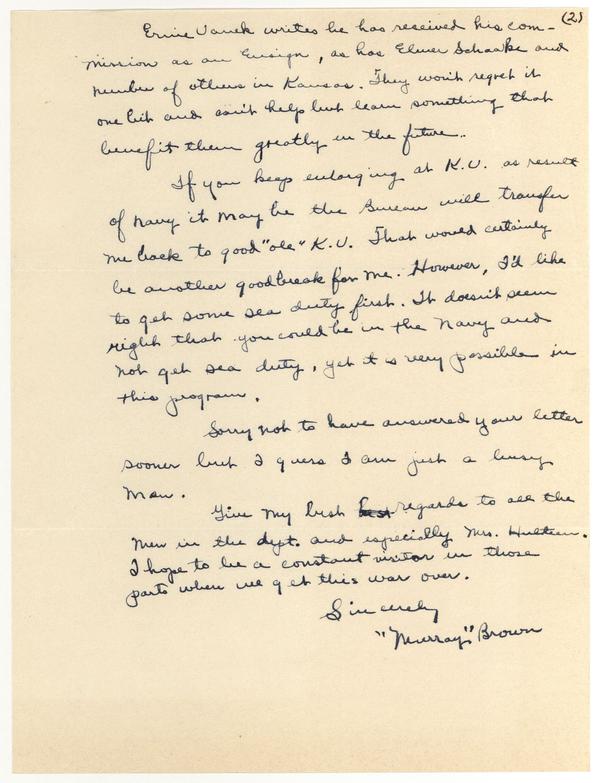 (2)
Ernie Vanek writes he has received his com-
mission as an Ensign, as has Elmer Schaake and
number of others in Kansas. They won't regret it
one bit and can't help but learn something that
benefit them greatly in the future..
If you keep enlarging at K.U. as result
of navy it may be the Bureau will transfer
me back to good "ole" K.U. That would certainly
be another good break for me. However, I'd like
to get some sea duty first. It doesn't seem
right that you could be in the Navy and
not get sea duty, yet it is very possible in
this program.
Sorry not to have answered your letter
sooner but I guess I am just a busy
man.
Give my best regards to all the
men in the dept. and especially Mrs. Hulteen.
I hope to be a constant visitor in those
parts when we get this war over.
Sincerely
"Murray" Brown